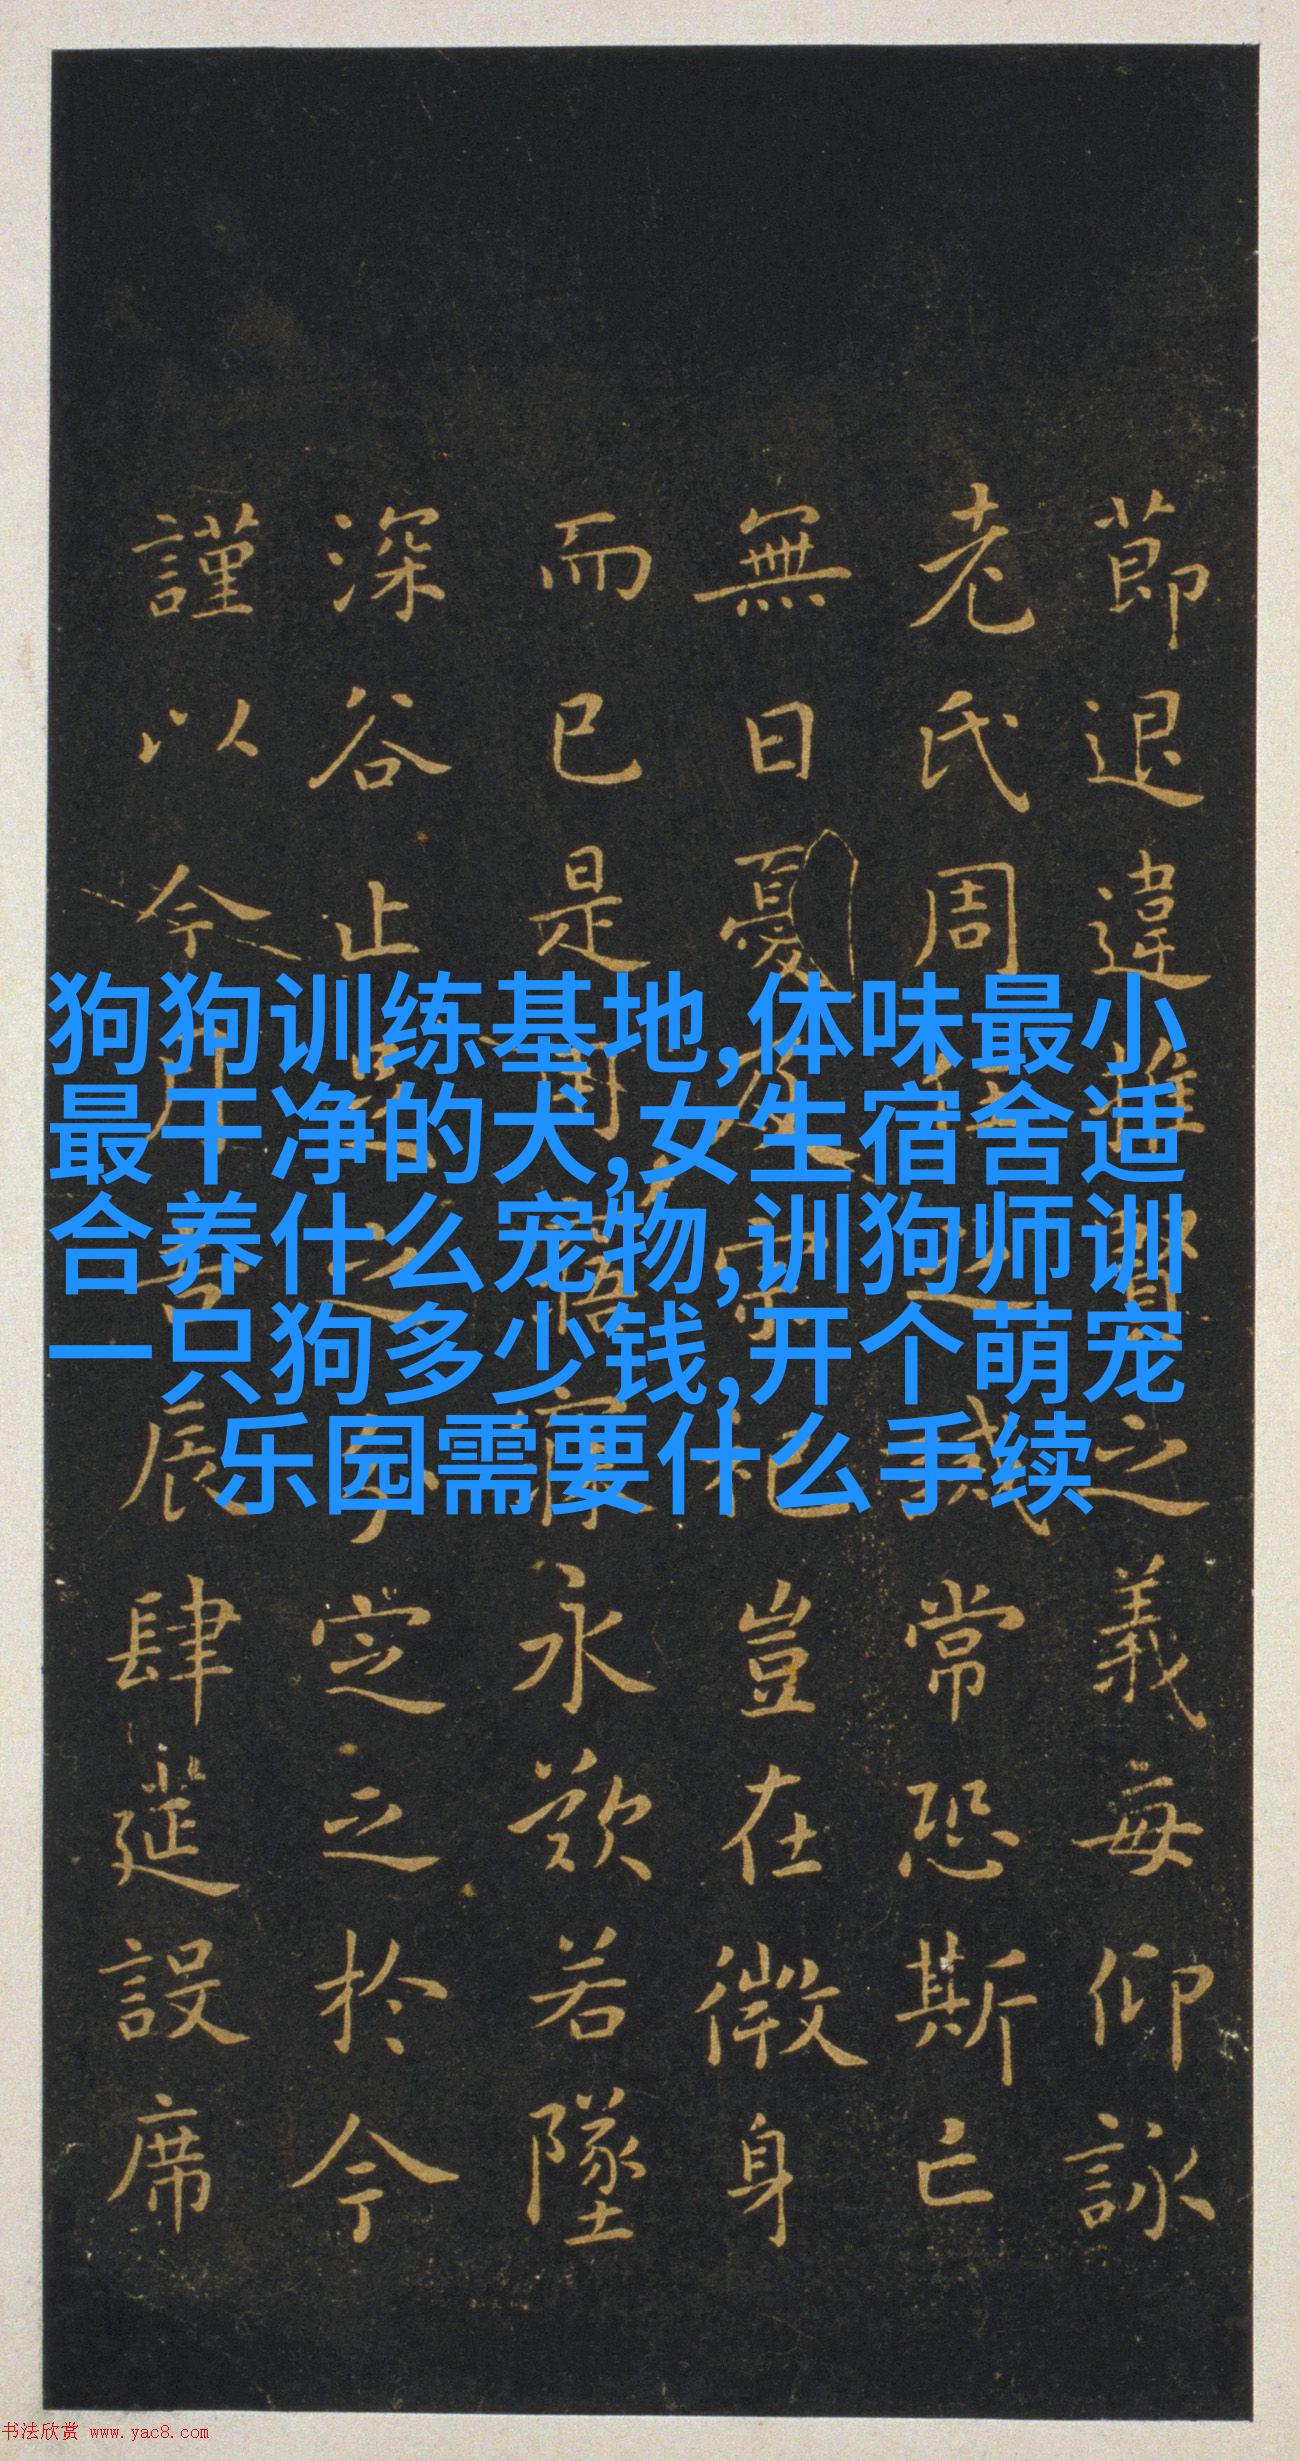 狗狗训练基地,体味最小
最干净的犬,女生宿舍适
合养什么宠物,训狗师训
一只狗多少钱,开个萌宠
乐园需要什么手续
節退違推賢之義每仰詠
老氏周任之誡常恐斯亡
無日憂及宗祀豈在微身
而已是用寤寐永歎若墜
深谷止足之分定之於今
謹以今月吉辰肆筵設席
书法欣赏 www.yac8.com